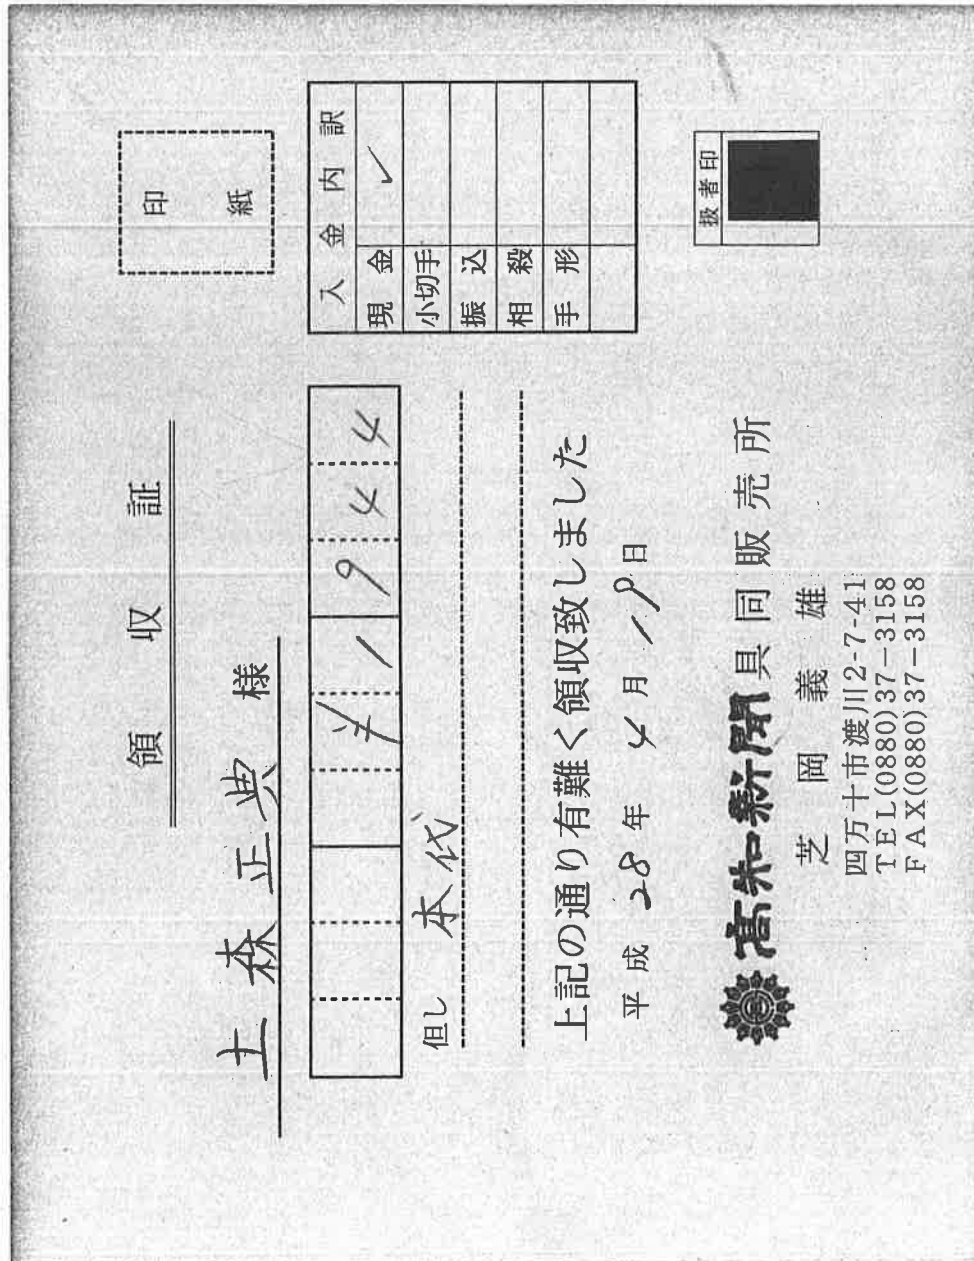 領収証
印紙
土森正典様
¥1944
但し 本代
入金内訳
現金 ✓
小切手
振込
相殺
手形
上記の通り有難く領収致しました
平成 28 年 4 月 19 日
扱者印
高知新聞 具同販売所
芝岡義雄
四万十市渡川2-7-41
TEL(0880)37-3158
FAX(0880)37-3158